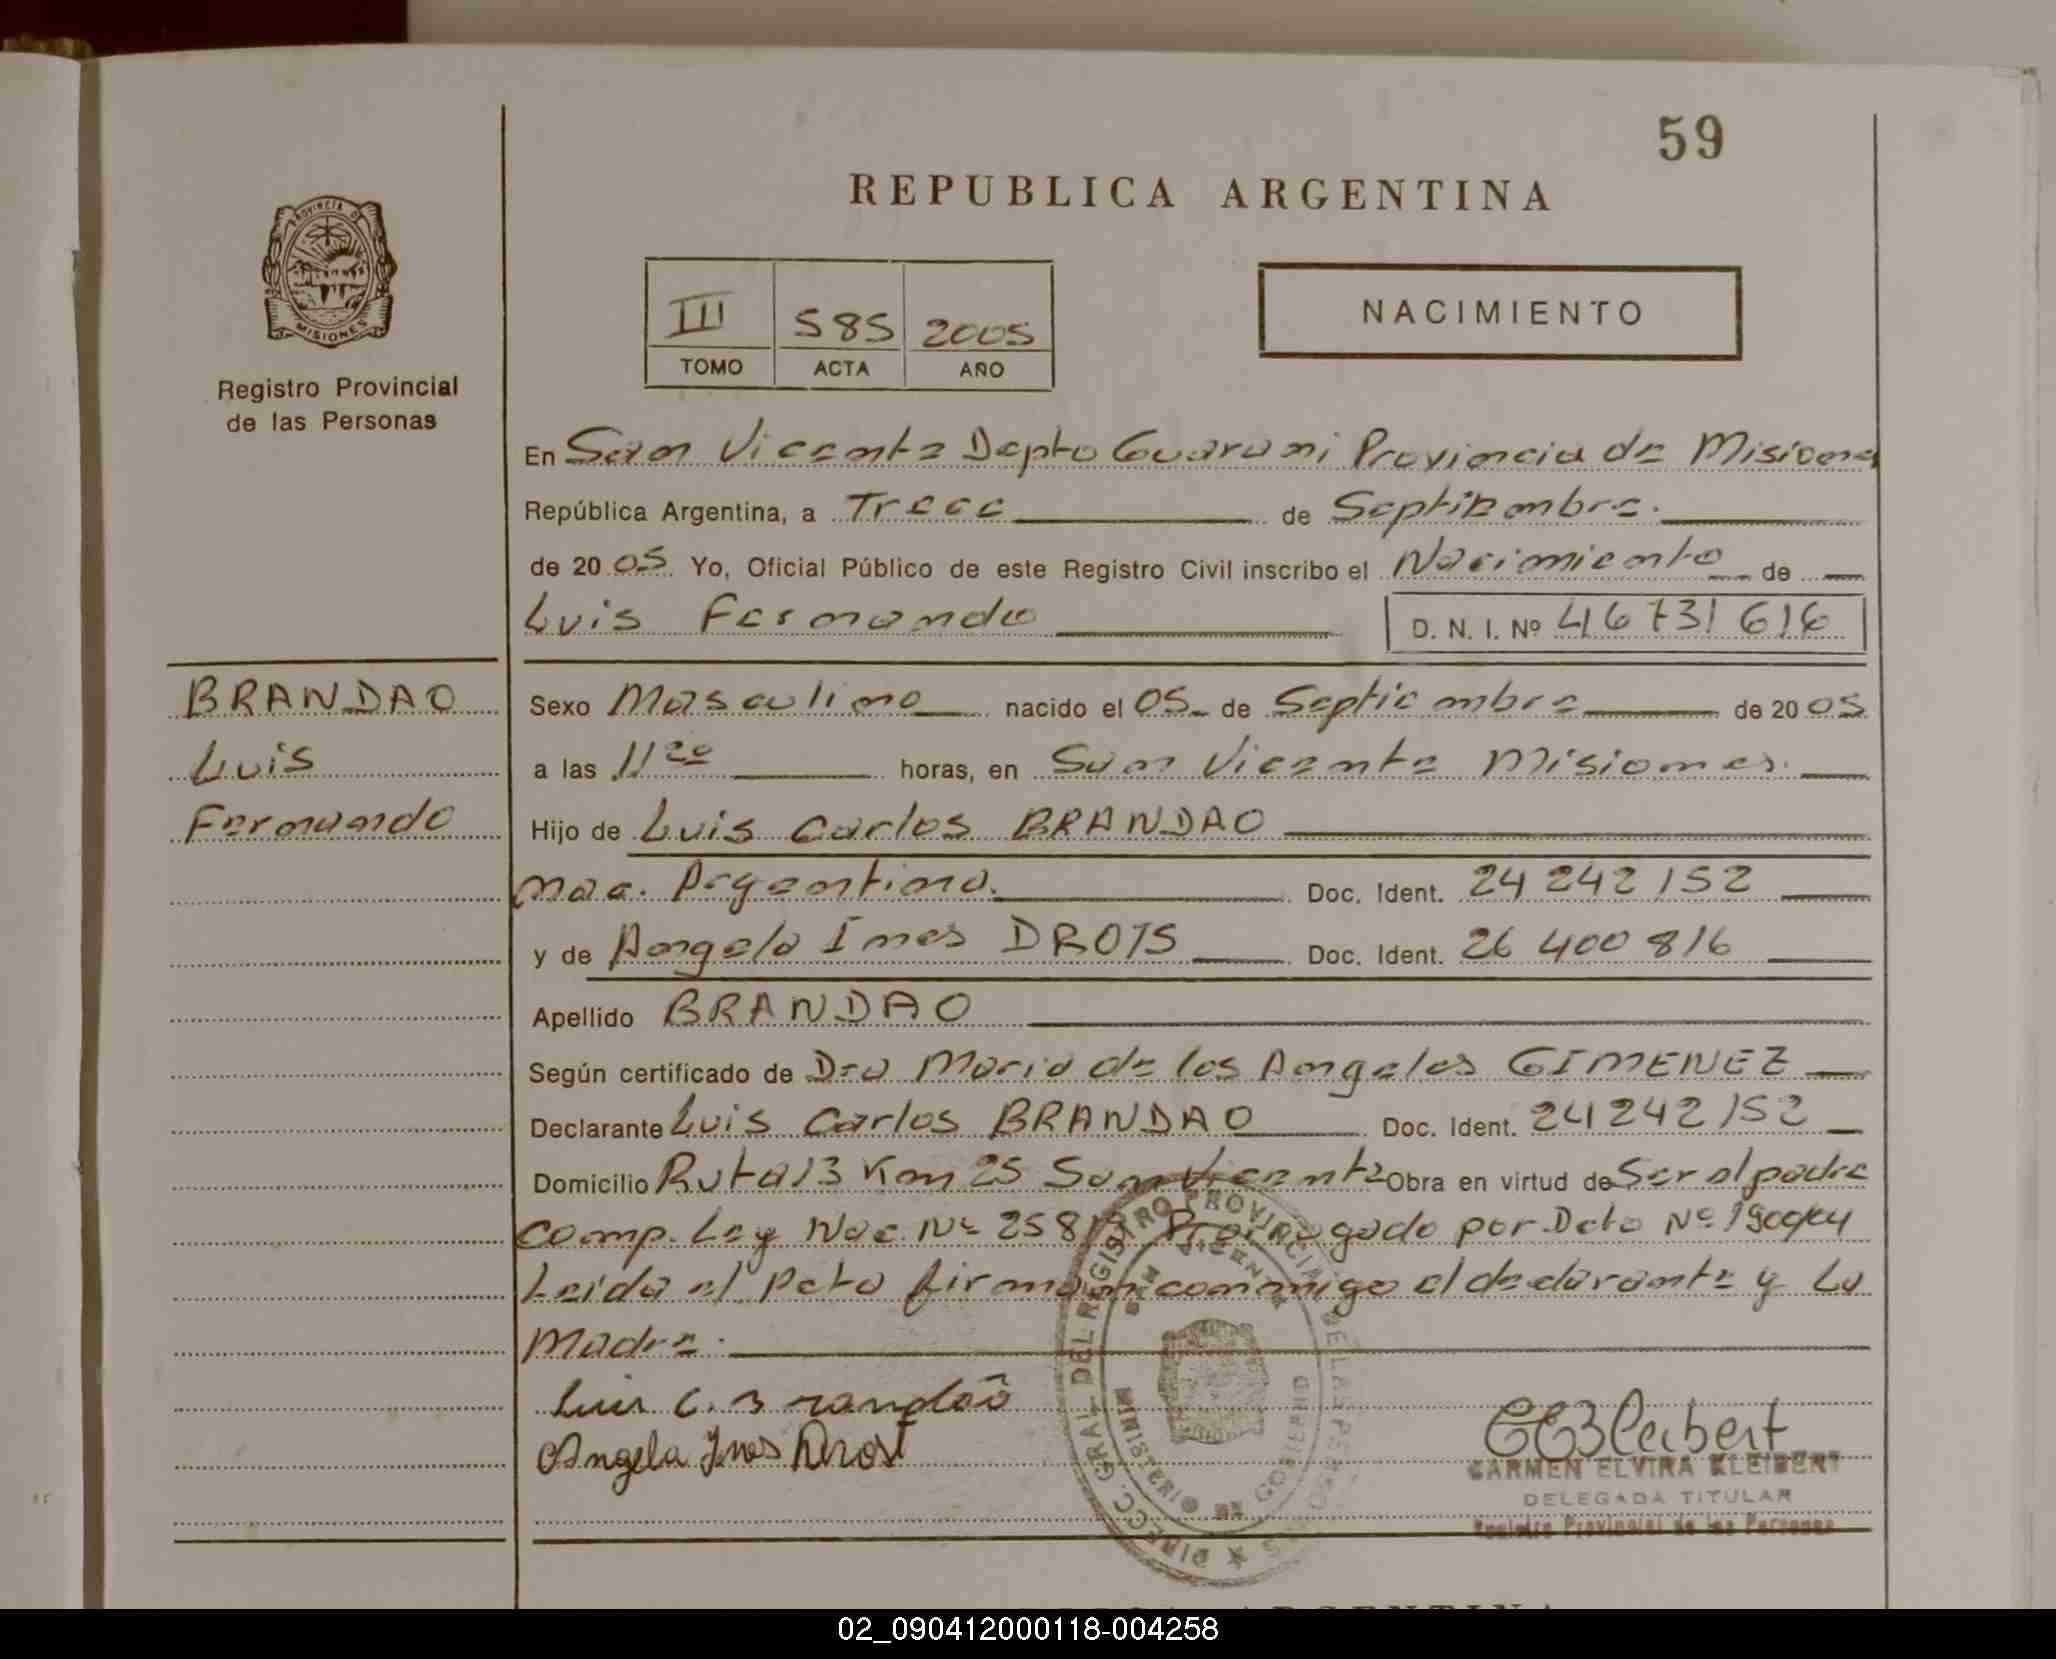 59
REPUBLICA ARGENTINA
PROVINCIA DE
MISIONES
Registro Provincial
de las Personas
III 585 2005
TOMO ACTA AÑO
NACIMIENTO
En San Vicente Depto Guarani Provincia de Misiones
República Argentina, a Trece de Septiembre.
de 2005. Yo, Oficial Público de este Registro Civil inscribo el Nacimiento de
Luis Fernando D. N. I. Nº 46731616
BRANDAO
Luis
Fernando
Sexo Masculino nacido el 05 de Septiembre de 2005
a las 11 20 horas, en San Vicente Misiones.
Hijo de Luis Carlos BRANDAO
Nac. Argentina. Doc. Ident. 24 242 152
y de Angela Ines DROTS Doc. Ident. 26 400 816
Apellido BRANDAO
Según certificado de Dra Maria de los Angeles GIMENEZ
Declarante Luis Carlos BRANDAO Doc. Ident. 24 242 152
Domicilio Ruta 13 Km 25 San Vicente Obra en virtud de Ser el padre
comp. Ley Nac. Nº 25819 Prorrogado por Dcto Nº
Leida el Acta firman conmigo el declarante y La
Madre.
Luis C. Brandaõ
Angela Ines Drost
CARMEN ELVIRA KLEIBERT
DELEGADA TITULAR
Registro Provincial de las Personas
DIRECC. GRAL. DEL REGISTRO PROVINCIAL DE LAS PERSONAS
SAN VICENTE
MINISTERIO DE GOBIERNO
02_090412000118-004258